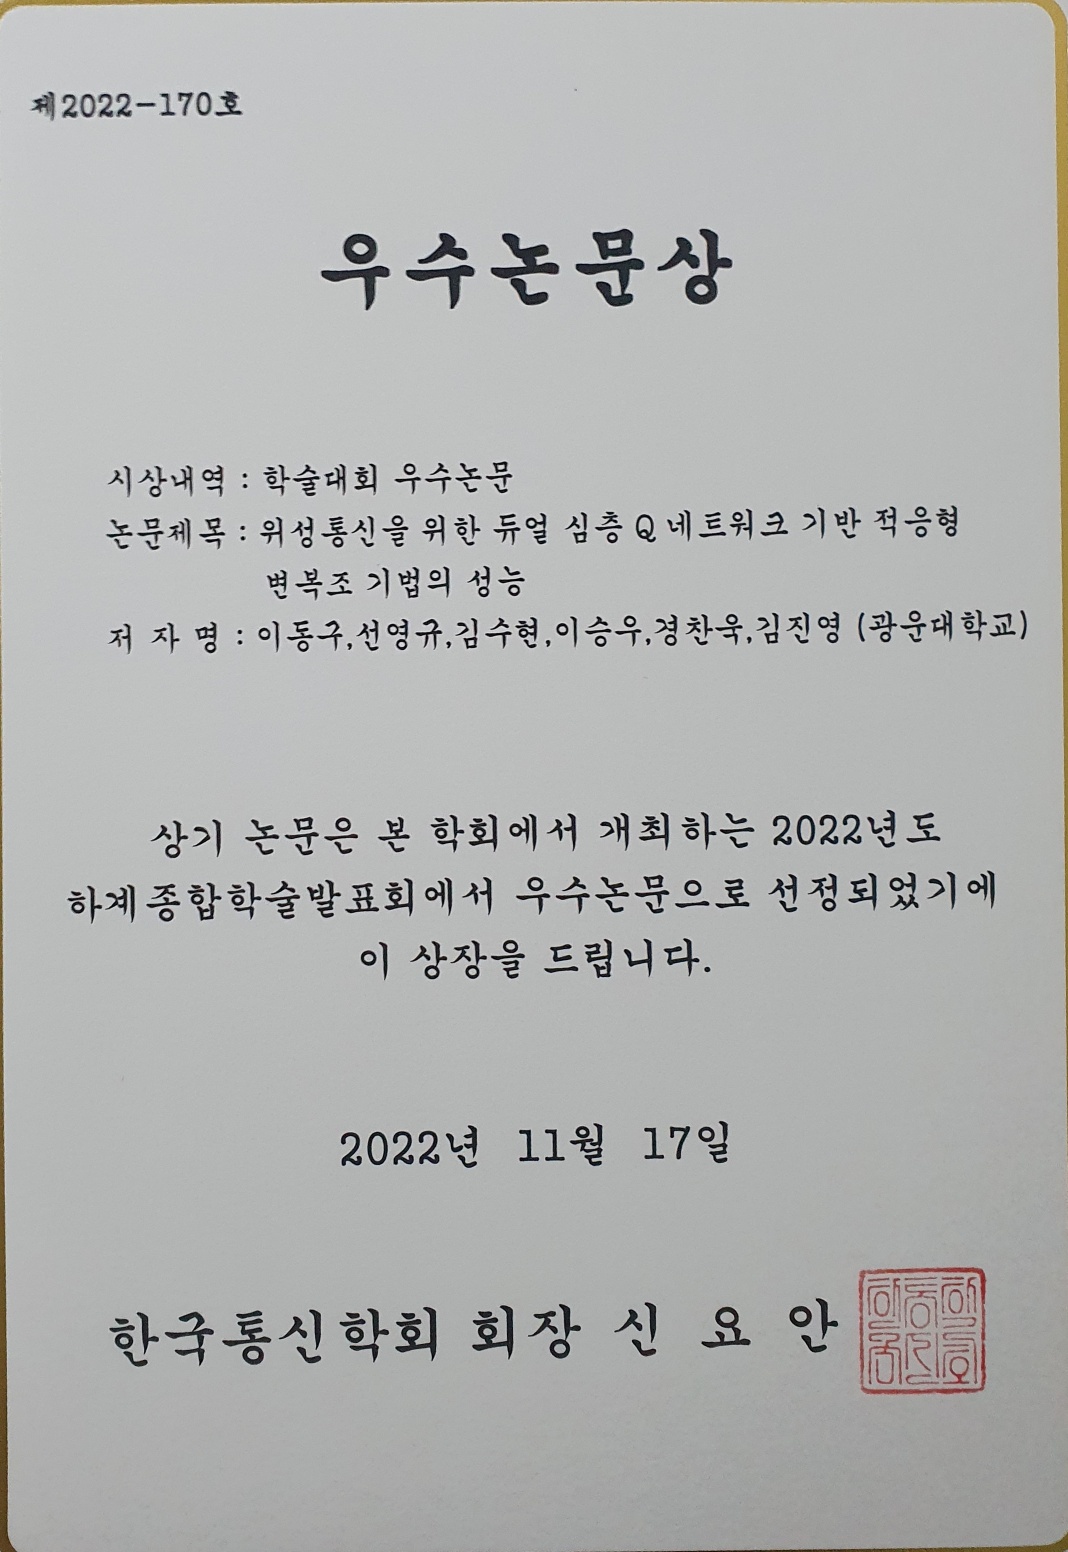 제2022-170호
우수논문상
시상내역 : 학술대회 우수논문
논문제목 : 위성통신을 위한 듀얼 심층 Q 네트워크 기반 적응형
변복조 기법의 성능
저 자 명 : 이동구,선영규,김수현,이승우,경찬욱,김진영 (광운대학교)
상기 논문은 본 학회에서 개최하는 2022년도
하계종합학술발표회에서 우수논문으로 선정되었기에
이 상장을 드립니다.
2022년 11월 17일
한국통신학회 회장 신 요 안